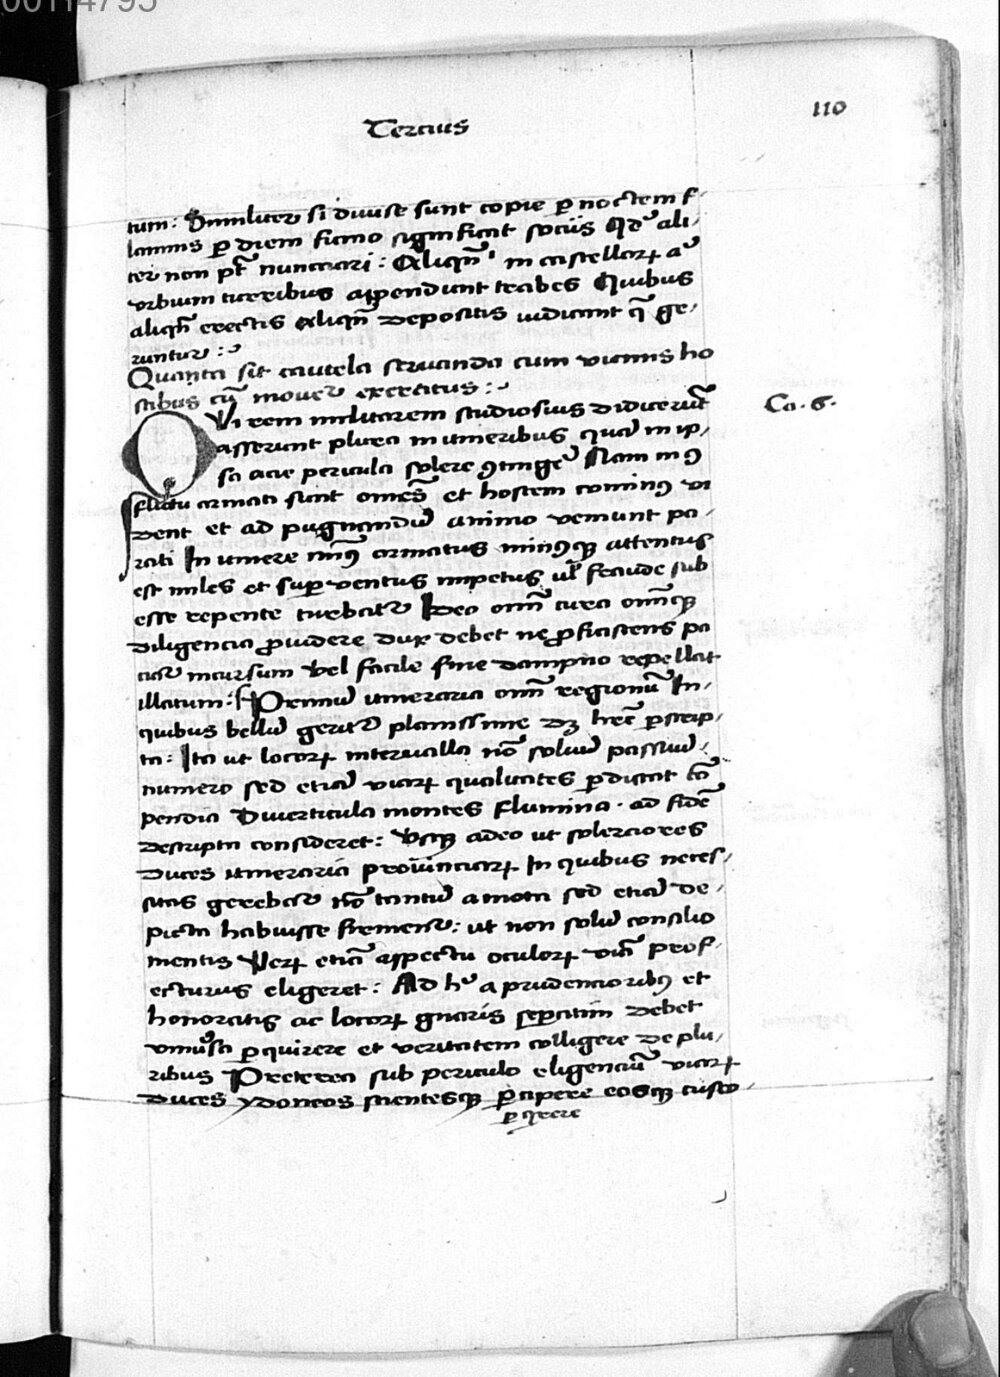 00114795
Tercius
110
tum: Similiter si diuise sunt copie ꝑ noctem f-
lammis ꝑ diem fumo significat sociis Qd' ali-
ter non pt̄ nunciari: Aliqn̄ in castelloꝝ a'
vrbium turribus appendunt trabes Quibus
aliqn̄ erectis aliqn̄ depositis iudicant q̄ ge-
runtur:
Quanta sit cautela seruanda cum vicinis ho
stibus cū mouet' exercitus:
Ca. 6.
QVi rem militarem studiosius didicerūt
asserunt plura in itineribus quā in ip-
sa acie pericula solere ꝯtinge' Nam in ꝯ
flictu armati sunt om̄es et hostem cominꝰ vi
dent et ad pugnandū animo veniunt pa-
rati In itinere min̄ꝰ armatus minꝰqꝫ attentus
est miles et superuentus impetus ul' fraude sub
esse repente turbat' Ideo om̄i cura om̄iqꝫ
diligencia ꝓuidere dux debet ne ꝓficiscens pa
ciat' incursum vel facile sine dampno repellat
illatum: Primū itineraria om̄i regionū In-
quibus bellū gerit' planissime dꝫ hr̄e ꝑscrip-
ta: Ita ut locoꝝ interualla nō solum passuū-
numero sed etiā viaꝝ qualitates ꝑdiscat cō
pendia Diuerticula montes flumina. ad fidē
descripta consideret: Vsqꝫ adeo ut solerciores
duces itineraria prouinciaꝝ In quibus neces-
sitas gerebat' nō tantū amota sed etiā de-
picta habuisse firment': ut non solū consilio
mentis Veꝝ etiā aspectu oculoꝝ viā prof-
ecturus eligeret: Ad h' a prudencioribꝰ et
honoratis ac locoꝝ gnaris seperatim debet
vniūsa ꝑquirere et veritatem colligere de plu-
ribus Preterea sub periculo eligenciū viaꝝ
duces ydoneos scientesqꝫ ꝑcipere eosqꝫ custo-
ꝑ qrere